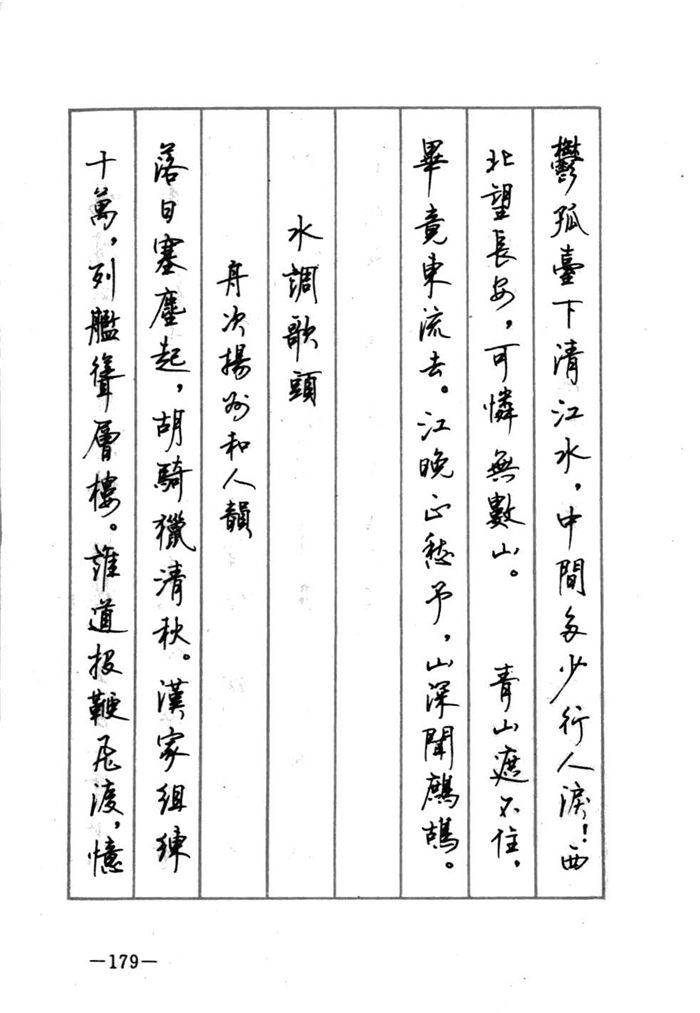 鬱孤臺下清江水，中間多少行人淚！西
北望長安，可憐無數山。　青山遮不住，
畢竟東流去。江晚正愁予，山深聞鷓鴣。
水調歌頭
舟次揚州和人韻
落日塞塵起，胡騎獵清秋。漢家組練
十萬，列艦聳層樓。誰道投鞭飛渡，憶
—179—